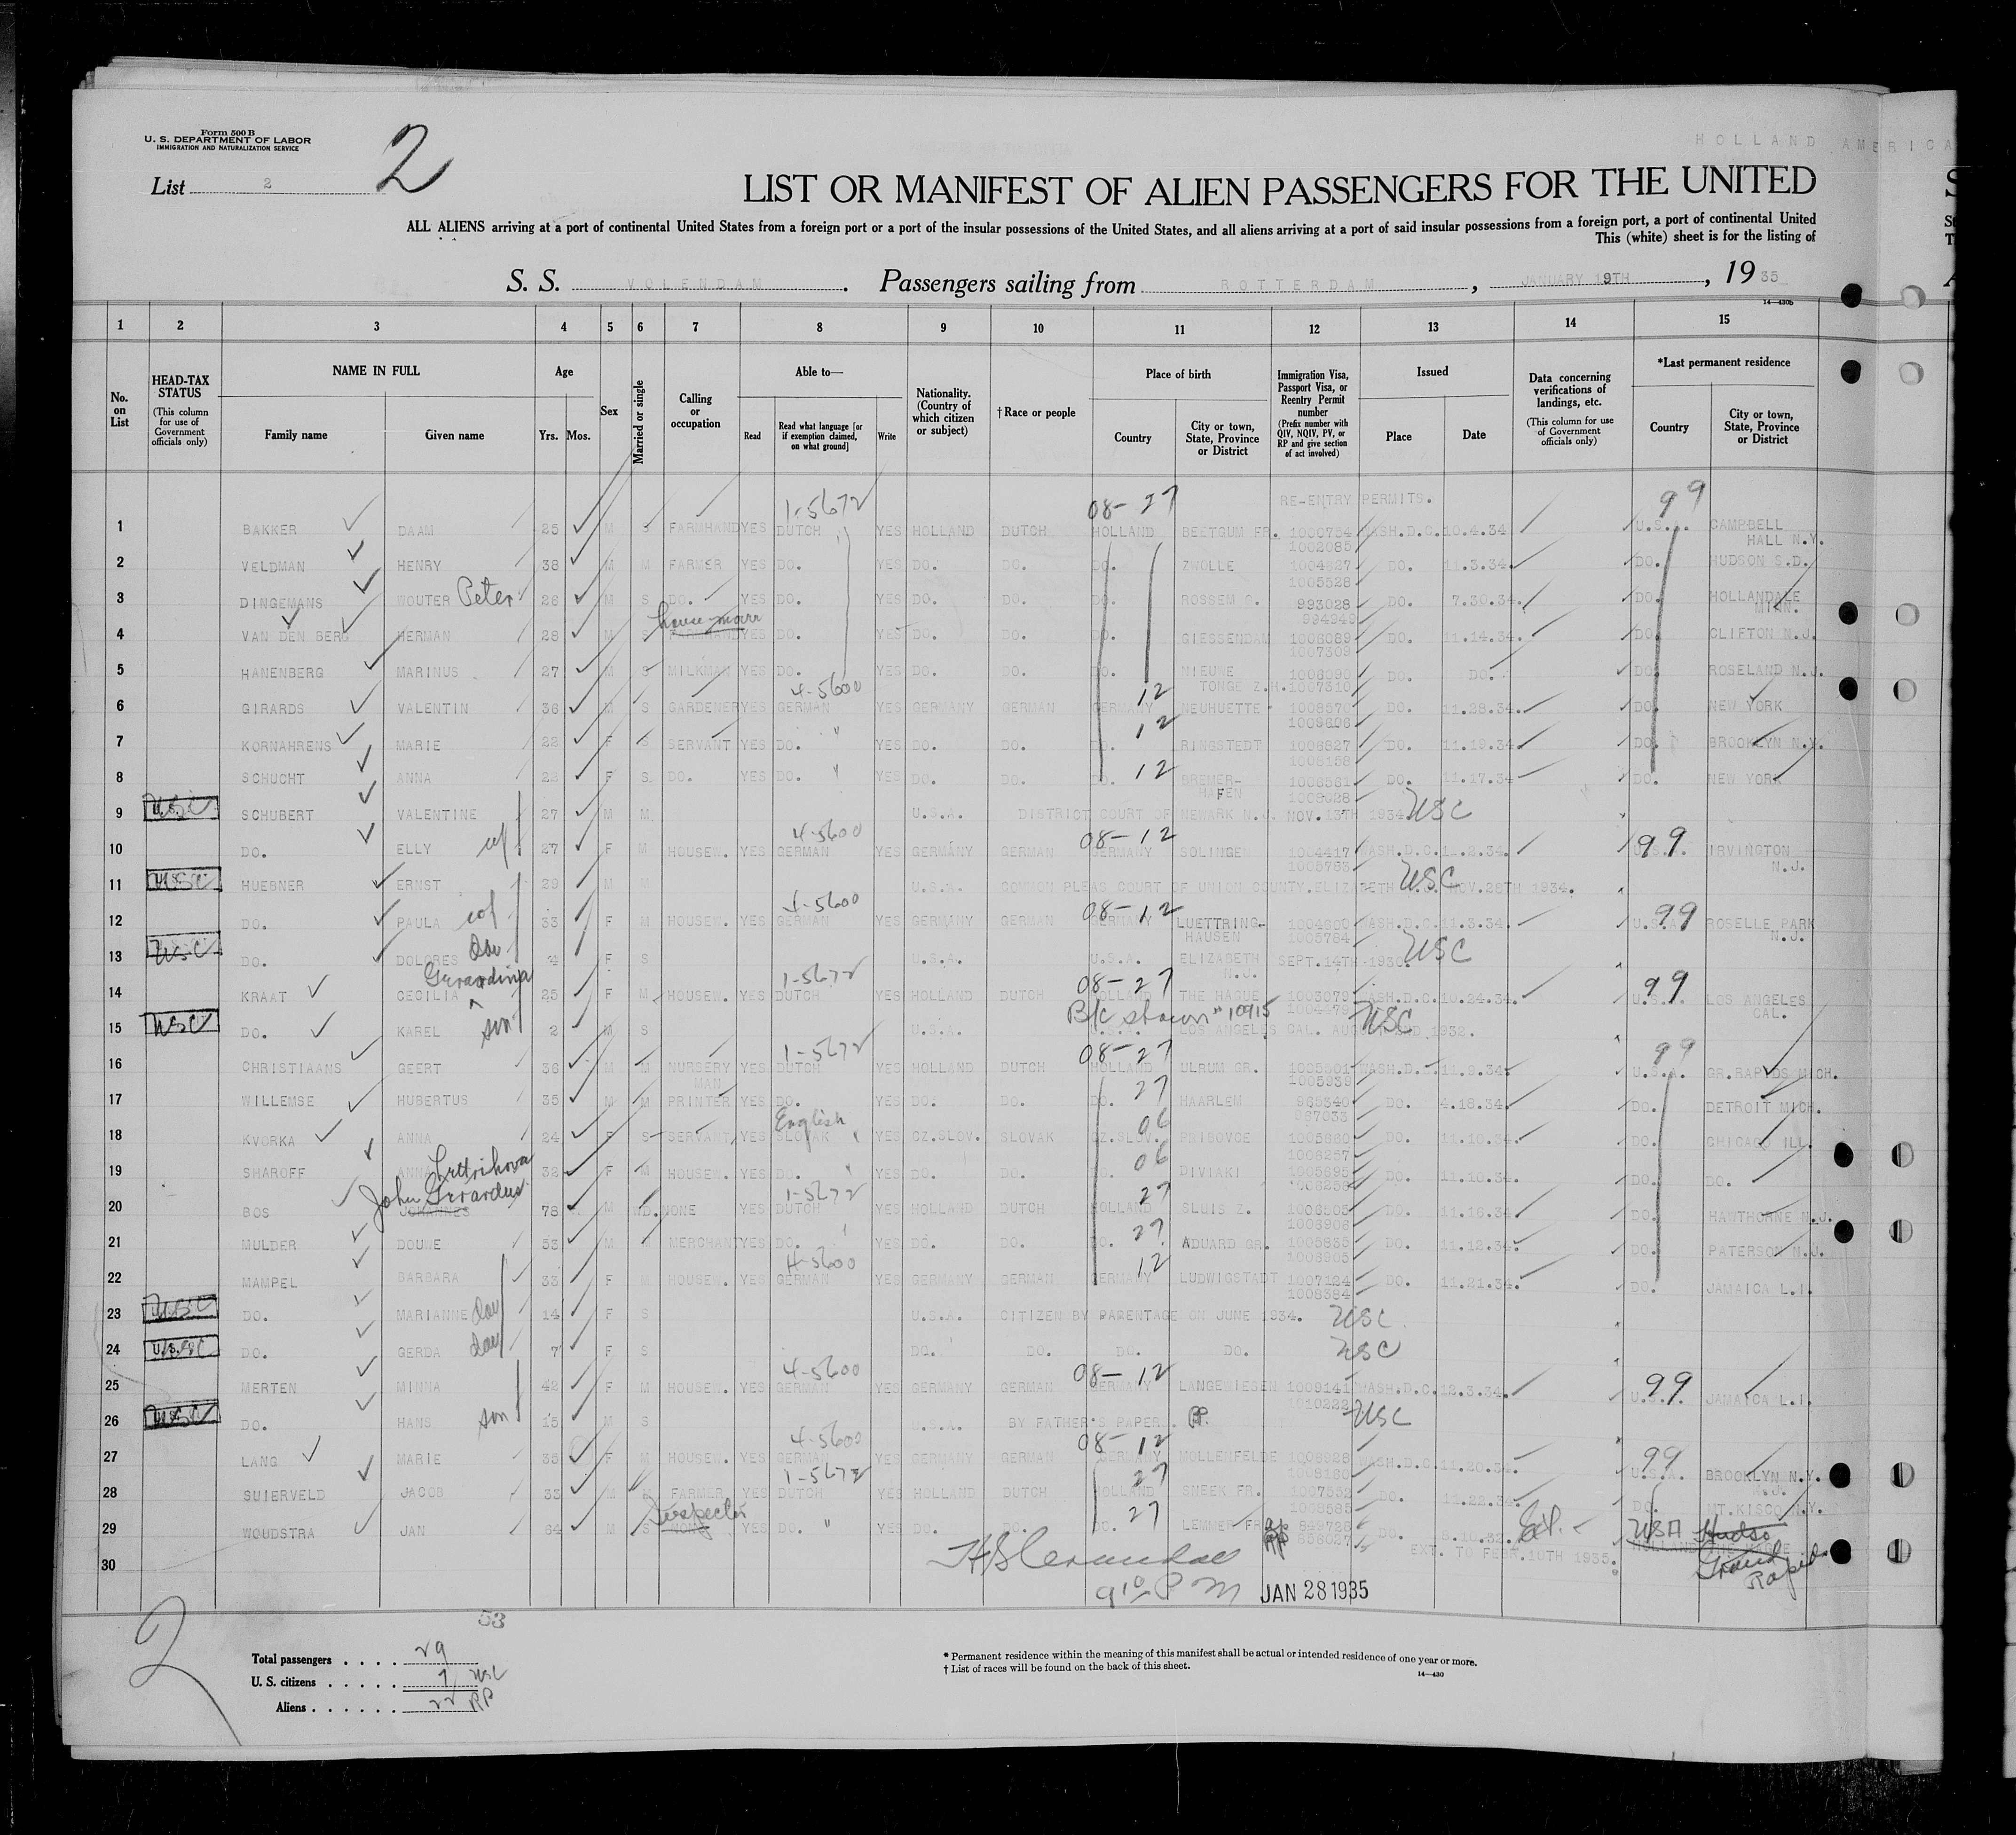 Form 500 B
U. S. DEPARTMENT OF LABOR
IMMIGRATION AND NATURALIZATION SERVICE
HOLLAND AMERICA
List 2
2
LIST OR MANIFEST OF ALIEN PASSENGERS FOR THE UNITED
ALL ALIENS arriving at a port of continental United States from a foreign port or a port of the insular possessions of the United States, and all aliens arriving at a port of said insular possessions from a foreign port, a port of continental United
This (white) sheet is for the listing of
S. S. VOLENDAM. Passengers sailing from ROTTERDAM, JANUARY 19TH, 1935
14—430b
1 2 3 4 5 6 7 8 9 10 11 12 13 14 15
No. on List
HEAD-TAX STATUS (This column for use of Government officials only)
NAME IN FULL
Family name
Given name
Age
Yrs. Mos.
Sex
Married or single
Calling or occupation
Able to—
Read
Read what language [or if exemption claimed, on what ground]
Write
Nationality. (Country of which citizen or subject)
† Race or people
Place of birth
Country
City or town, State, Province or District
Immigration Visa, Passport Visa, or Reentry Permit number (Prefix number with QIV, NQIV, PV, or RP and give section of act involved)
Issued
Place
Date
Data concerning verifications of landings, etc. (This column for use of Government officials only)
*Last permanent residence
Country
City or town, State, Province or District
1-5672 08-27 RE-ENTRY PERMITS. 99
1 BAKKER DAAM 25 M S FARMHAND YES DUTCH YES HOLLAND DUTCH HOLLAND BEETGUM FR. 1000754 WASH.D.C. 10.4.34 U.S.A. CAMPBELL HALL N.Y.
1002085
2 VELDMAN HENRY 38 M M FARMER YES DO. YES DO. DO. DO. ZWOLLE 1004627 DO. 11.3.34. DO. HUDSON S.D.
1005528
3 DINGEMANS WOUTER Peter 26 M S DO. YES DO. YES DO. DO. DO. ROSSEM G. 993028 DO. 7.30.34. DO. HOLLANDALE MINN.
house man 994949
4 VAN DEN BERG HERMAN 28 M S FARMHAND YES DO. YES DO. DO. DO. GIESSENDAM 1006089 DO. 11.14.34. DO. CLIFTON N.J.
1007309
5 HANENBERG MARINUS 27 M S MILKMAN YES DO. YES DO. DO. DO. NIEUWE TONGE Z.H. 1006090 DO. DO. DO. ROSELAND N.J.
4-5600 12 1007310
6 GIRARDS VALENTIN 36 M S GARDENER YES GERMAN YES GERMANY GERMAN GERMANY NEUHUETTE 1008570 DO. 11.28.34. DO. NEW YORK
12
7 KORNAHRENS MARIE 22 F S SERVANT YES DO. " YES DO. DO. DO. RINGSTEDT 1006827 DO. 11.19.34. DO. BROOKLYN N.Y.
8 SCHUCHT ANNA 22 F S. DO. YES DO. " YES DO. DO. DO. 12 BREMER-HAFEN DO. 11.17.34 DO. NEW YORK
9 USC SCHUBERT VALENTINE 27 M M U.S.A. DISTRICT COURT OF NEWARK N.J. NOV. 13TH 1934. USC
4-5600 08-12
10 DO. ELLY wf 27 F M HOUSEW. YES GERMAN YES GERMANY GERMAN GERMANY SOLINGEN 1004417 WASH.D.C. 11.2.34. 99 IRVINGTON N.J.
11 USC HUEBNER ERNST 29 M M U.S.A. COMMON PLEAS COURT OF UNION COUNTY.ELIZABETH NOV.28TH 1934. USC
4-5600 08-12
12 DO. PAULA wf 33 F M HOUSEW. YES GERMAN YES GERMANY GERMAN GERMANY LUETTRING-HAUSEN WASH.D.C. 11.3.34. U.S.A. 99 ROSELLE PARK N.J.
1005764
13 USC DO. DOLORES dau 4 F S U.S.A. U.S.A. ELIZABETH N.J. SEPT.14TH 1930. USC
Gerardina 1-5672 08-27 99
14 KRAAT CECILIA 25 F M HOUSEW. YES DUTCH YES HOLLAND DUTCH HOLLAND THE HAGUE 1003079 WASH.D.C. 10.24.34. U.S.A. LOS ANGELES CAL.
B/C shown "10915
15 USC DO. KAREL son 2 M S U.S.A. U.S.A. LOS ANGELES CAL. 1932. USC
1-5672 08-27 99
16 CHRISTIAANS GEERT 36 M M NURSERY MAN YES DUTCH YES HOLLAND DUTCH HOLLAND ULRUM GR. 1005501 WASH.D. 11.9.34. U.S.A. GR.RAPIDS MICH.
1005939
17 WILLEMSE HUBERTUS 35 M M PRINTER YES DO. YES DO. DO. DO. 27 HAARLEM 965340 DO. 4.18.34. DO. DETROIT MICH.
English 06
18 KVORKA ANNA 24 F S SERVANT YES SLOVAK YES CZ.SLOV. SLOVAK CZ.SLOV. PRIBOVCE 1005660 DO. 11.10.34. DO. CHICAGO ILL.
06 1006257
19 SHAROFF ANNA 32 F M HOUSEW. YES DO. " YES DO. DO. DO. DIVIAKI 1005695 DO. 11.10.34. DO. DO.
John Gerardus 1-5672 27
20 BOS JOHANNES 78 M WD. NONE YES DUTCH YES HOLLAND DUTCH HOLLAND SLUIS Z. DO. 11.16.34 DO. HAWTHORNE N.J.
27
21 MULDER DOUWE 53 M M MERCHANT YES DO. YES DO. DO. DO. ADUARD GR. 1005835 DO. 11.12.34. DO. PATERSON N.J.
4-5600 12
22 MAMPEL BARBARA 33 F M HOUSEW. YES GERMAN YES GERMANY GERMAN GERMANY LUDWIGSTADT 1007124 DO. 11.21.34. DO. JAMAICA L.I.
1008384
23 USC DO. MARIANNE dau 14 F S U.S.A. CITIZEN BY PARENTAGE ON JUNE 1934. USC
24 USC DO. GERDA dau 7 F S DO. DO. DO. DO. USC
4-5600 08-12
25 MERTEN MINNA 42 F M HOUSEW. YES GERMAN YES GERMANY GERMAN GERMANY LANGEWIESEN 1009141 WASH.D.C. 12.3.34. U.S.A. 99 JAMAICA L.I.
1010222
26 USC DO. HANS son 15 M S U.S.A. BY FATHER'S PAPERS. USC
4-5600 08-12 99
27 LANG MARIE 35 F M HOUSEW. YES GERMAN YES GERMANY GERMAN GERMANY MOLLENFELDE WASH.D.C. 11.20.34. U.S.A. BROOKLYN N.Y.
1-5672 27
28 SUIERVELD JACOB 33 M M FARMER YES DUTCH YES HOLLAND DUTCH HOLLAND SNEEK FR. DO. 11.22.34. DO. MT.KISCO N.Y.
27
29 WOUDSTRA JAN 64 M S NONE YES DO. " YES DO. DO. DO. LEMMER FR. DO. USA Grand Rapids
EXT. TO FEBR.10TH 1935.
30
9 10 PM JAN 28 1935
53
2
Total passengers . . . . 29
U. S. citizens . . . . . 7 USC
Aliens . . . . . . 22 RP
* Permanent residence within the meaning of this manifest shall be actual or intended residence of one year or more.
† List of races will be found on the back of this sheet.
14—430